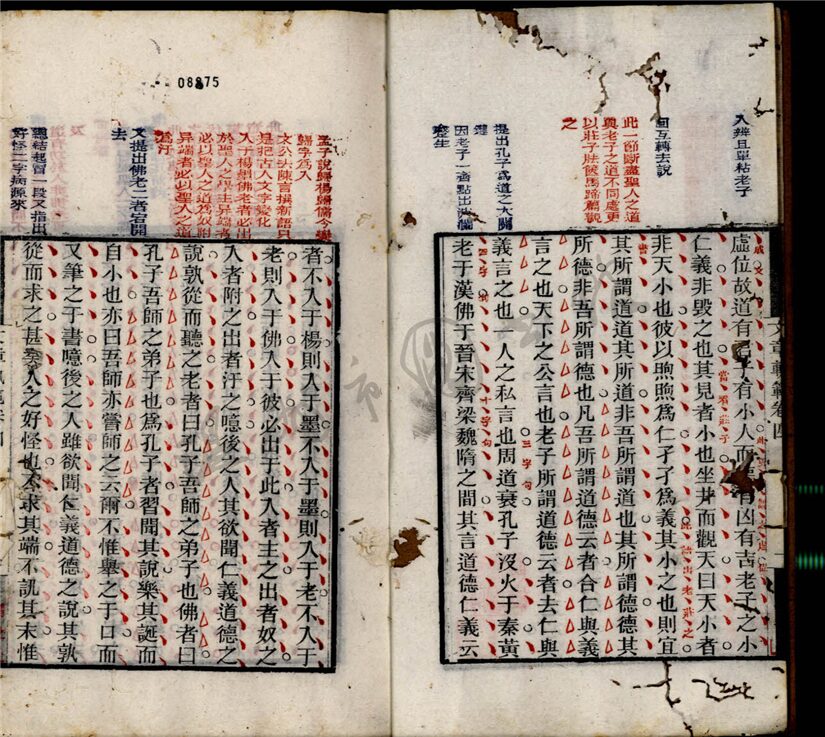 入辨且單粘老子
回互轉去說
此一節斷盡聖人之道
與老子之道不同處更
以莊子胠候馬蹄篇觀
之
提出孔子為道之大關
鍵
因老子一音點出
虛位故道有君子有小人而德有凶有吉老子之小
仁義非毀之也其見者小也坐井而觀天曰天小者
非天小也彼以煦煦為仁孑孑為義其小之也則宜
其所謂道道其所道非吾所謂道也其所謂德德其
所德非吾所謂德也凡吾所謂道德云者合仁與義
言之也天下之公言也老子所謂道德云者去仁與
義言之也一人之私言也周道衰孔子沒火于秦黃
老于漢佛于晉宋齊梁魏隋之間其言道德仁義云
文章軌範卷四
08875
孟子說歸楊歸儒今變
歸字為入
文公去陳言撰新語只
是把古人文字變化
入于楊墨佛老者必出
於聖人之學主異端者
必以聖人之道為奴附
異端者必以聖人之道
為汙
又提出佛老二者宕開
去
總結起冒一段又指出
好怪二字病源來
者不入于楊則入于墨不入于墨則入于老不入于
老則入于佛入于彼必出于此入者主之出者奴之
入者附之出者汙之噫後之人其欲聞仁義道德之
說孰從而聽之老者曰孔子吾師之弟子也佛者曰
孔子吾師之弟子也為孔子者習聞其說樂其誕而
自小也亦曰吾師亦嘗師之云爾不惟舉之于口而
又筆之于書噫後之人雖欲聞仁義道德之說其孰
從而求之甚矣人之好怪也不求其端不訊其末惟